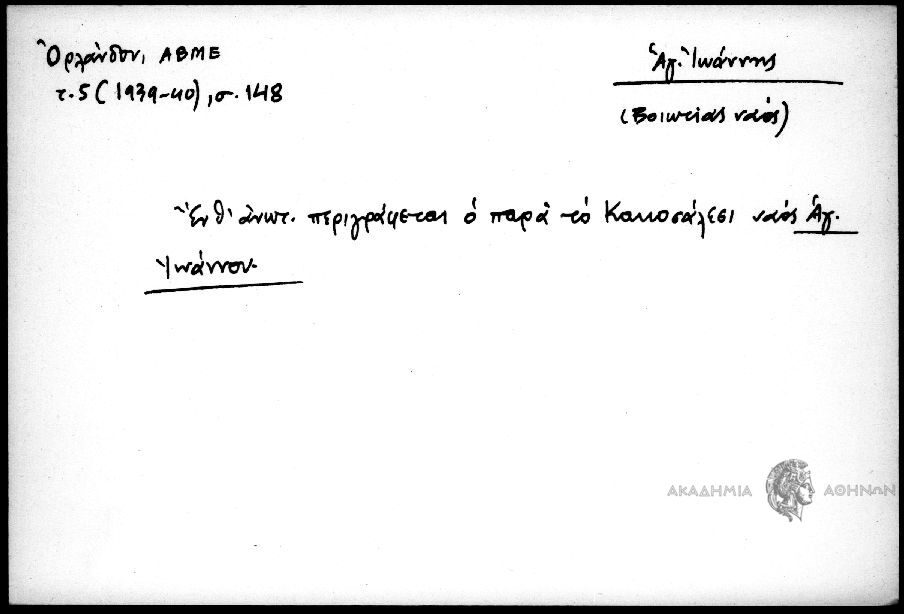 Ὀρλάνδου, ΑΒΜΕ
τ. 5 (1939-40), σ. 148
Ἅγ. Ἰωάννης
(Βοιωτίας ναός)
Ἔνθ' ἀνωτ. περιγράφεται ὁ παρὰ τὸ Κακοσάλεσι ναός Ἁγ.
Ἰωάννου.
ΑΚΑΔΗΜΙΑ ΑΘΗΝΩΝ